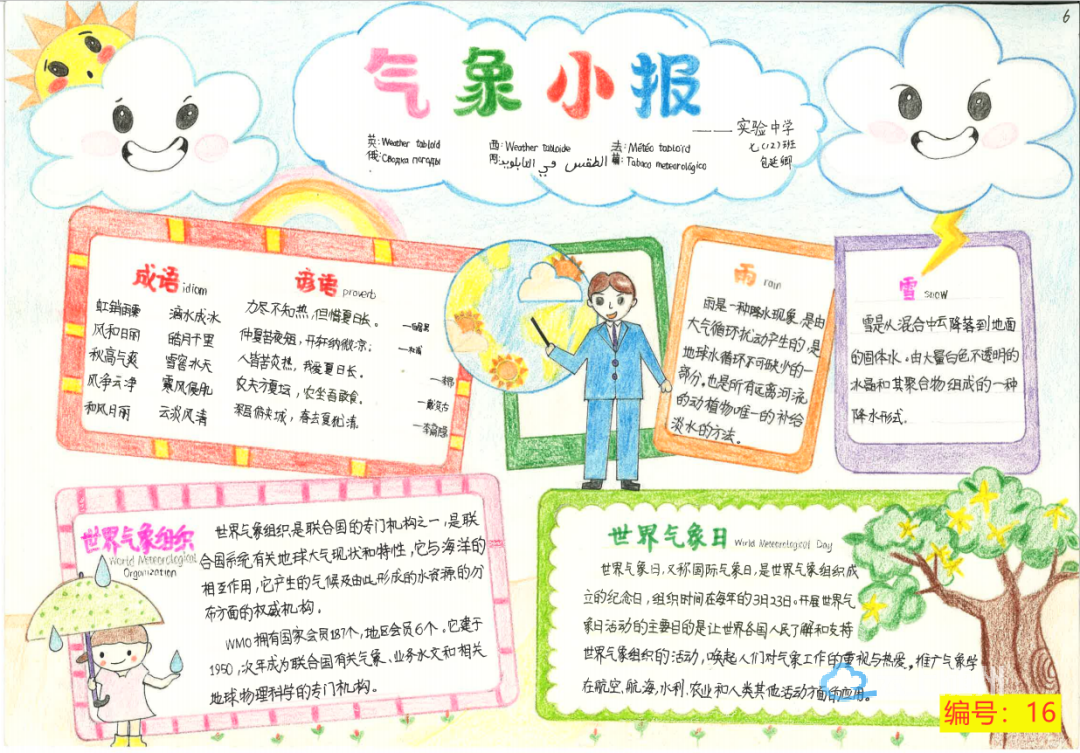 6
气象小报
——实验中学
七(12)班
英: Weather tabloid
西: Weather tabloide
法: Météo tabloïd
俄: Сводка погоды
阿: الطقس في التابلويد
葡: Tabaco meteorológico
成语 idiom
谚语 proverb
滴水成冰
风和日丽
皓月千里
秋高气爽
雪窖冰天
风净云净
寒风侵肌
和风日丽
云淡风清
力尽不知热，但惜夏日长。
仲夏苦夜短，开轩纳微凉；
人皆苦炎热，我爱夏日长。
雨 rain
雨是一种降水现象，是由
大气循环扰动产生的，是
地球水循环不可缺少的一
部分，也是所有远离河流
的动植物唯一的补给
淡水的方法。
雪 snow
雪是从混合中云降落到地面
的固体水。由大量白色不透明的
水晶和其聚合物组成的一种
降水形式。
世界气象组织
World Meteorological
Organization
世界气象组织是联合国的专门机构之一，是联
合国系统有关地球大气现状和特性，它与海洋的
相互作用，它产生的气候及由此形成的水资源的分
布方面的权威机构。
WMO拥有国家会员187个，地区会员6个。它建于
1950，次年成为联合国有关气象、业务水文和相关
地球物理科学的专门机构。
世界气象日 World Meteorological Day
世界气象日，又称国际气象日，是世界气象组织成
立的纪念日，组织时间在每年的3月23日。开展世界气
象日活动的主要目的是让世界各国人民了解和支持
世界气象组织的活动，唤起人们对气象工作的重视与热爱。推广气象学
在航空、航海、水利、农业和人类其他活动方面的应用。
编号：16